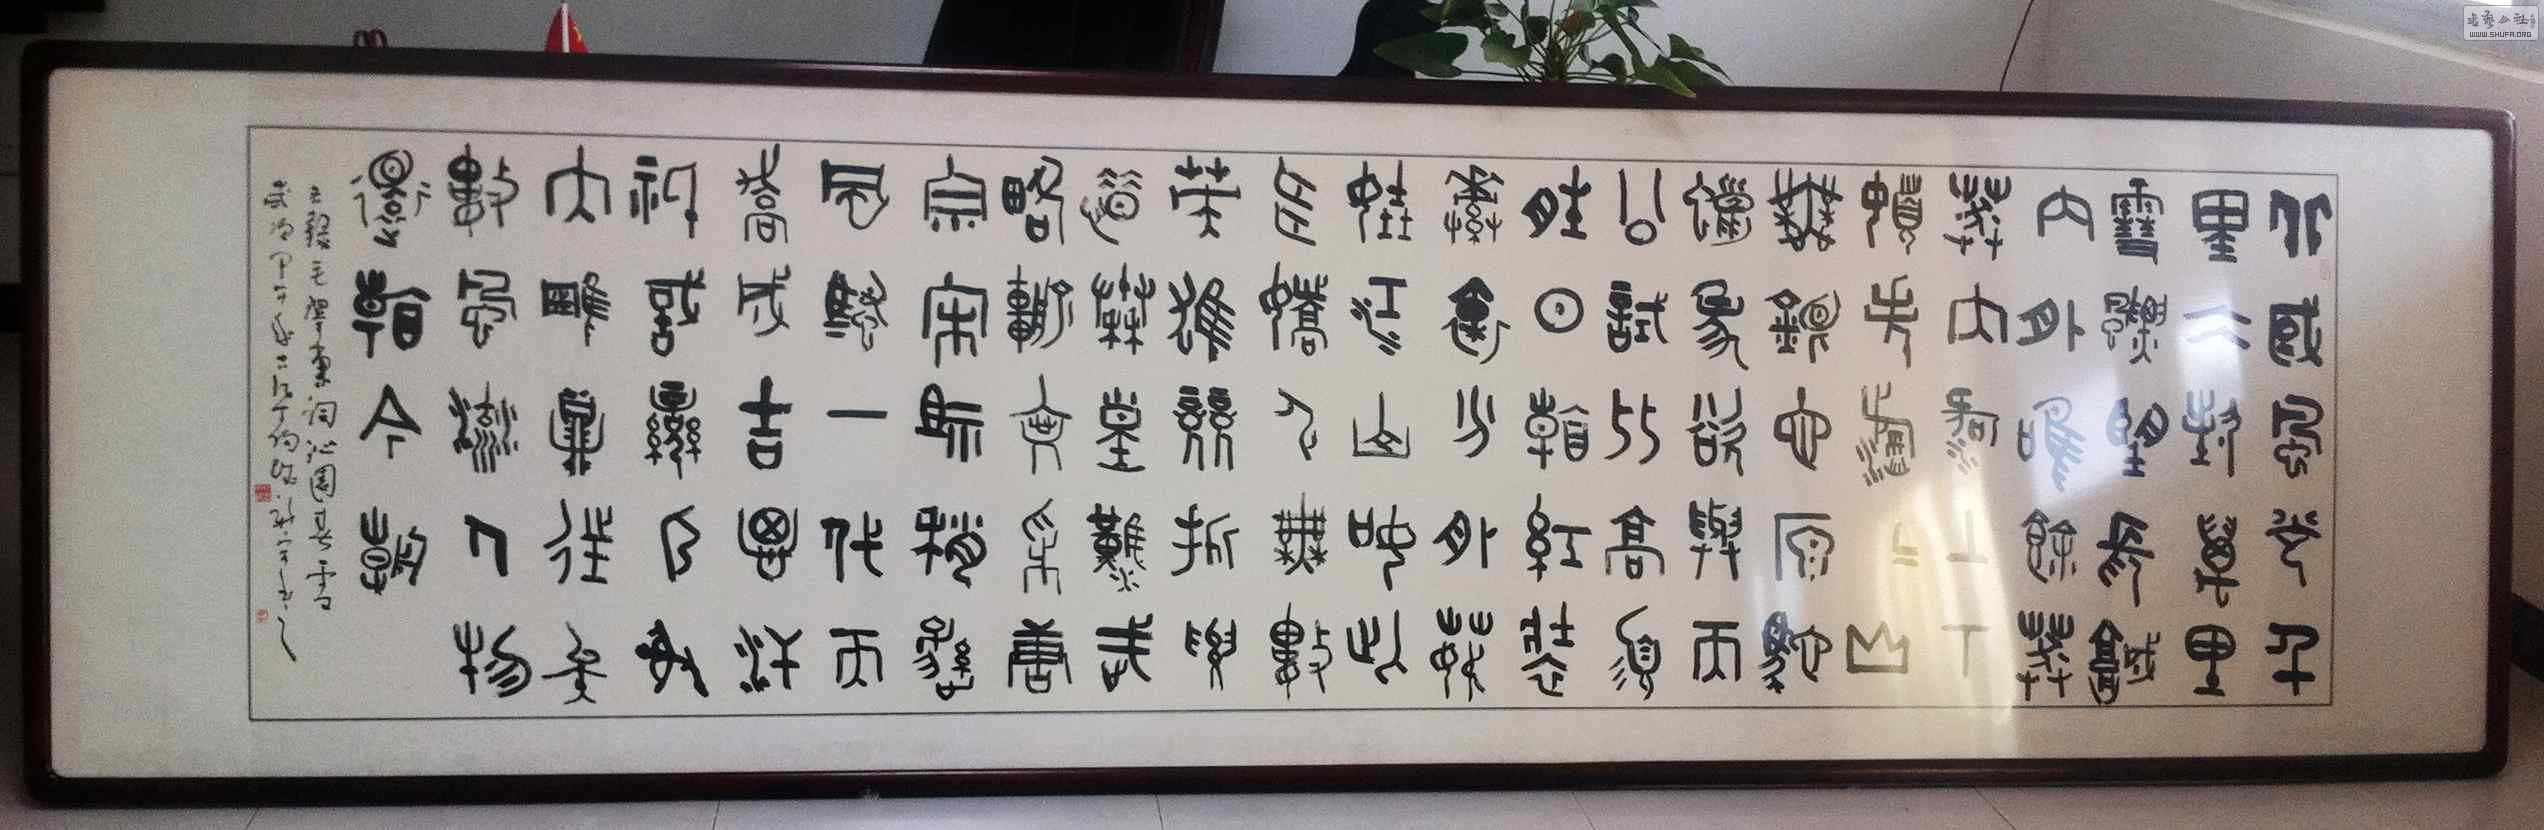 北國風光千
里冰封萬里
雪飄望長城
內外惟餘莽
莽大河上下
頓失滔滔山
舞銀蛇原馳
蠟象欲與天
公試比高須
晴日看紅裝
素裹分外妖
嬈江山如此
多嬌引無數
英雄競折腰
惜秦皇漢武
略輸文采唐
宗宋祖稍遜
風騷一代天
驕成吉思汗
祇識彎弓射
大雕俱往矣
數風流人物
還看今朝
右錄毛澤東詞沁園春雪
歲次甲午年
书艺公社
WWW.SHUFA.ORG